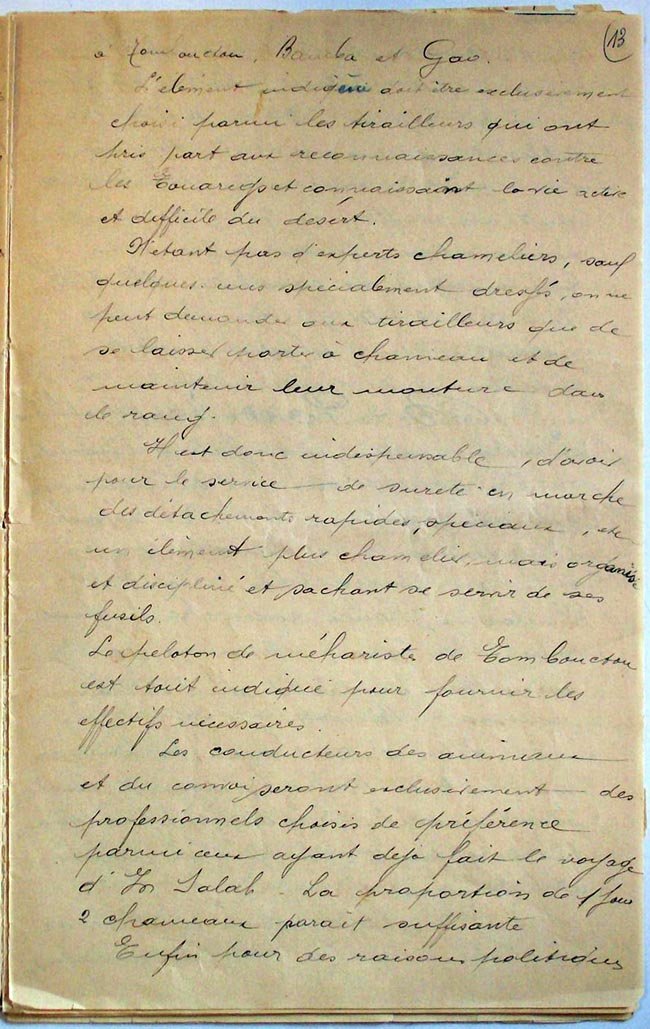 (13
à Tombouctou, Bamba et Gao.
L'élément indigène doit être exclusivement
choisi parmi les tirailleurs qui ont
pris part aux reconnaissances contre
les Touaregs et connaissant la vie active
et difficile du désert.
N'étant pas d'experts chameliers, sauf
quelques-uns spécialement dressés, on ne
peut demander aux tirailleurs que de
se laisser porter à chameau et de
maintenir leur monture dans
le rang.
Il est donc indispensable, d'avoir
pour le service de sureté en marche
des détachements rapides, spéciaux,
un élément plus chamelier, mais organisé
et discipliné et sachant se servir de ses
fusils.
Le peloton de méhariste de Tombouctou
est tout indiqué pour fournir les
effectifs nécessaires.
Les conducteurs des animaux
et du convoi seront exclusivement des
professionnels choisis de préférence
parmi ceux ayant déjà fait le voyage
d'In Salah. La proportion de 1 pour
2 chameaux parait suffisante
Enfin pour des raisons politiques